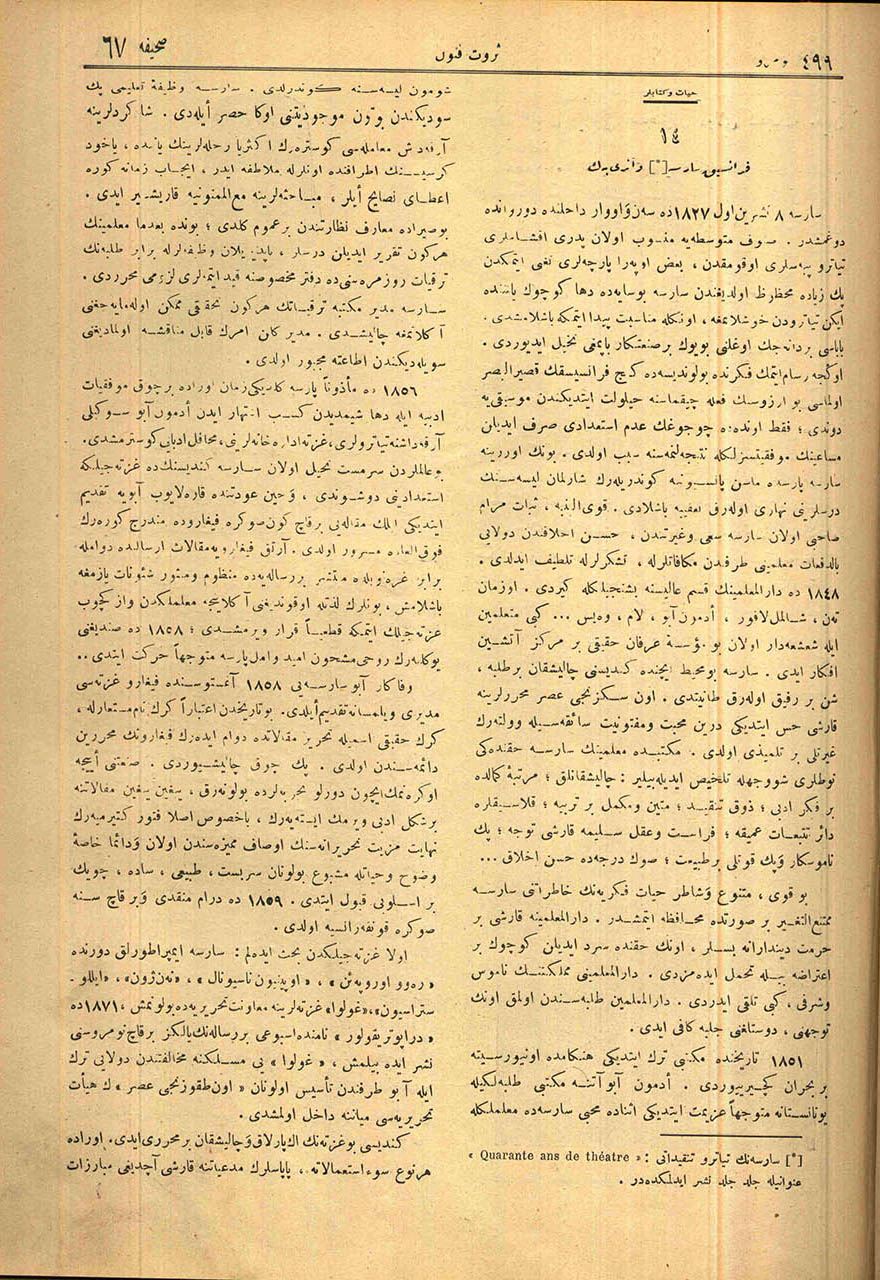 ٤٩٩ نومرو
ثروت فنون
صحیفه ٦٧
حیات وکتابلر
١٤
فرانسیسق سارسه [*] و آزی بك
سارسه ٨ تشرین اول ١٨٢٧ ده سه‌ن ژاووار داخلنده دوروانده
دوغمشدر . صوف متوسطه‌یه منسوب اولان پدری اقشاملری
تیاترو پیه‌سلری اوقومقدن ، بعض اوپه‌را پارچه‌لری تغنی ایتمکدن
پك زیاده محظوظ اولدیغندن سارسه بوسایه‌ده دها کوچوك یاشنده
ایکن تیاترودن خوشلانمغه ، اونکله مناسبت پیدا ایتمکه باشلامشدی .
باباسی بردانه‌جك اوغلنی بویوك برصنعتکار یاپمغی تخیل ایدیوردی .
اوکجه رسام ایتمك فکرنده بولوندیسه‌ده کنج فرانسیسقك قصیرالبصر
اولماسی بو آرزوسنك فعله چیقماسنه حیلولت ایتدیکندن موسیقی‌یه
دوندی ؛ فقط اونده‌ده چوجوغك عدم استعدادی صرف ایدیلن
مساعینك موفقیتسزلکله نتیجه‌لنمسنه سبب اولدی . بونك اوزرینه
سارسه پارسده ماسن پانسیوننه کوندریله‌رك شارلمان لیسه‌سنك
درسلرینی نهاری اوله‌رق تعقیبه باشلادی . قوی‌الذهن ، ثبات مرام
صاحبی اولان سارسه سعی وغیرتندن ، حسن اخلاقندن دولایی
بالدفعات معلمینی طرفندن مکافاتلرله ، تشکرلرله تلطیف ایدلدی .
١٨٤٨ ده دارالمعلمینك قسم عالیسنه بشنجیلکله کیردی . اوزمان
تەن ، شالمل‌لاقور ، أدمون آبو ، لام ، وه‌یس ... کبی متعلمین
ایله شعشعه‌دار اولان بو مؤسسۀ عرفان حقیقی بر مرکز آتشین
افکار ایدی . سارسه بومحیط ایچنده کندیسنی چالیشقان برطلبه ،
شن بر رفیق اوله‌رق طانیتدی . اون سکزنجی عصر محررلرینه
قارشی حس ایتدیکی درین محبت ومفتونیت سائقه‌سیله وولته‌رك
غیرتلی بر تلمیذی اولدی . مکتبده معلمینك سارسه حقنده‌کی
نوطلری شووجهله تلخیص ایدیله‌بیلیر : چالیشقانلق ؛ مرتبۀ کمالده
بر فکر ادبی ؛ ذوق تنقید ؛ متین ومکمل بر تربیه ؛ قلاسیقلره
دائر تتبعات عمیقه ؛ فراست وعقل سلیمه قارشی توجه ؛ پك
ناموسکار وپك قوتلی برطبیعت ؛ صوك درجه‌ده حسن اخلاق ...
بو قوی ، متنوع وشاطر حیات فکریه‌نك خاطراتنی سارسه
ممتنع‌التغیر بر صورتده محافظه ایتمشدر . دارالمعلمینه قارشی بر
حرمت دیندارانه بسلر ، اونك حقنده سرد ایدیلن کوچوك بر
اعتراضه بیله تحمل ایده‌مزدی . دارالمعلمینی مملکتنك ناموس
وشرفی ، کبی تلقی ایدردی . دارالمعلمین طلبه‌سندن اولمق اونك
توجهنی ، دوستلغنی جلبه کافی ایدی .
١٨٥١ تاریخنده مکتبی ترك ایتدیکی هنکامده اونیورسیته
بر بحران کچیرییوردی . أدمون آبو آتنه مکتبی طلبه‌لکیله
یونانستانه متوجهاً عزیمت ایتدیکی اثناده محبی سارسه‌ده معلملکله
[*] سارسه‌نك تیاترو تنقیداتی : « Quarante ans de théatre »
عنوانیله جلد جلد نشر ایدلمکده‌در .
شومون لیسه‌سنه کوندرلدی . سارسه وظیفۀ تعلیمی پك
سودیکندن بوتون موجودیتنی اوکا حصر أیله‌دی . شاکردلرینه
آرقداش معامله‌سی کوستره‌رك اکثریا رحله‌لرینك یاننده ، یاخود
کرسیسنك اطرافنده اونلرله ملاطفه ایدر ، ایجاب زمانه کوره
اعطای نصایح أیلر ، مباحثه‌لرینه مع‌الممنونیه قاریشیر ایدی .
بوصیراده معارف نظارتندن برعموم کلدی ؛ بونده بعدما معلمینك
هرکون تقریر ایدیلن درسلر ، یاپدیریلان وظیفه‌لرله برابر طلبه‌نك
ترقیات روزمره‌سنی‌ده دفتر مخصوصنه قید ایتمه‌لری لزومی محرردی .
سارسه مدیر مکتبه ترقیاتك هرکون تحققی ممکن اوله‌مایه‌جغنی
آکلاتمغه چالیشدی . مدیر کلن امرك قابل مناقشه اولمادیغنی
سویله‌دیکندن اطاعته مجبور اولدی .
١٨٥٦ ده مأذوناً پارسه کلدیکی زمان اوراده برچوق موفقیات
ادبیه ایله دها شیمدیدن کسب اشتهار ایدن أدمون آبو سوکیلی
آرقداشنه تیاترولری ، غزته اداره‌خانه‌لرینی ، محافل ادبایی کوسترمشدی .
بوعالملردن سرمست تخیل اولان سارسه کندیسنك‌ده غزته‌جیلکه
استعدادینی دوشوندی ، وحین عودتنده قاره‌لایوب آبویه تقدیم
ایتدیکی ایلك مقاله‌یی برقاچ کون‌صوکره فیغاروده مندرج کوره‌رك
فوق‌العاده مسرور اولدی . آرتق فیغارویه مقالات ارسالنده دوامله
برابر غره‌نوبلده منتشر بررساله‌یه‌ده منظوم ومنثور شئونات یازمغه
باشلامش ، بونلرك لذتله اوقوندیغنی آکلاینجه معلملکدن وازکچوب
غزته‌جیلك ایتمکه قطعیاً قرار ویرمشدی ؛ ١٨٥٨ ده صندیغنی
یوکلنه‌رك روحی مشحون امید وامل پارسه متوجهاً حرکت ایتدی ..
وفاکار آبو سارسه‌یی ١٨٥٨ آغستوسنده فیغارو غزته‌سی
مدیری ویلمسانه تقدیم أیلدی . بوتاریخدن اعتباراً کرك نام مستعارله ،
کرك حقیقی اسمیله تحریر مقالاتده دوام ایده‌رك فیغارونك محررین
دائمه‌سندن اولدی . پك چوق چالیشیوردی . صنعتی أییجه
اوکرنمك‌ایچون دورلو تجربه‌لرده بولونه‌رق ، ییغین ییغین مقالاتنه
برشکل ادبی ویرمك ایسته‌یه‌رك ، باخصوص اصلا فتور کتیرمیه‌رك
نهایت مزیت تحریرانه‌سنك اوصاف ممیزه‌سندن اولان ودائما خاصۀ
وضوح وحیاتله مشبوع بولونان سربست ، طبیعی ، ساده ، چویك
بر اسلوبی قبول ایتدی . ١٨٥٩ ده درام منقدی وبرقاچ سنه
صوکره قونفه‌رانسیه اولدی .
اولا غزته‌جیلکدن بحث ایده‌لم : سارسه ایمپراطورلق دورنده
« ره‌وو اوروپه‌ئن » ، « اوپینیون ناسیونال » ، « نه‌ن‌ژون» ، «ایللو-
ستراسیون» ، «غولوا» غزته‌لرینه معاونت تحریریه‌ده بولونمش ، ١٨٧١ ده
« دراپو تریقولور » نامنده اسبوعی بررساله‌نك یالکز برقاچ نومروسنی
نشر ایده بیلمش ، « غولوا » یی مسلکنه مخالفتندن دولایی ترك
ایله آبو طرفندن تأسیس اولونان « اون‌طقوزنجی عصر » ك هیأت
تحریریه‌سی میاننه داخل اولمشدی .
کندیسی بوغزته‌نك اك پارلاق وچالیشقان برمحرری‌ایدی. اوراده
هرنوع سوءاستعمالاته ، پاپاسلرك مدعیاتنه قارشی آچدیغی مبارزات